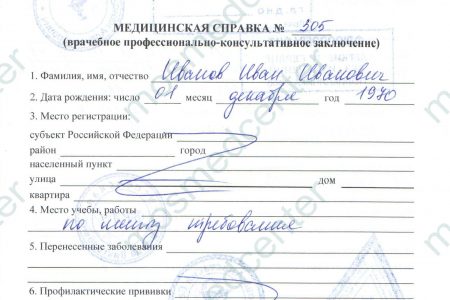 МЕДИЦИНСКАЯ СПРАВКА № 305
(врачебное профессионально-консультативное заключение)
1. Фамилия, имя, отчество Иванов Иван Иванович
2. Дата рождения: число 01 месяц декабря год 1970
3. Место регистрации:
субъект Российской Федерации
район город
населенный пункт
улица дом
квартира
4. Место учебы, работы
по месту требования
5. Перенесенные заболевания
6. Профилактические прививки
mosmedcenter